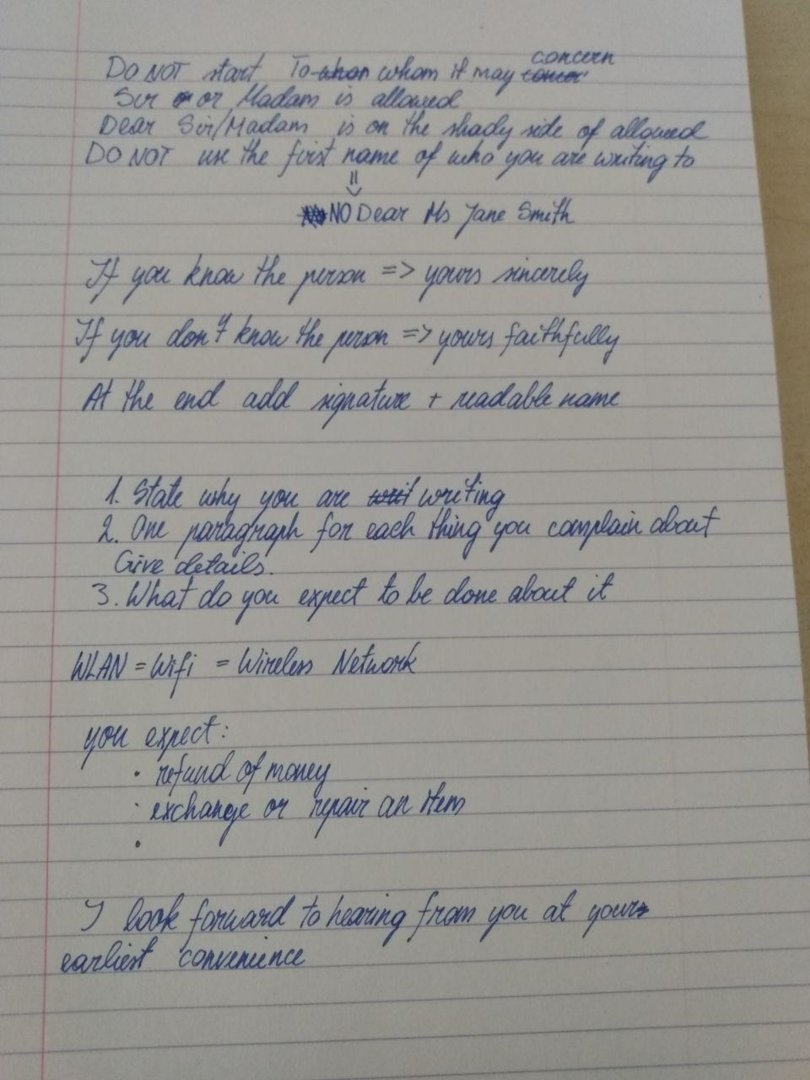 DO NOT start To whom it may concern
Sir or Madam is allowed
Dear Sir/Madam is on the shady side of allowed
DO NOT use the first name of who you are writing to
NO Dear Ms Jane Smith
If you know the person => yours sincerely
If you don't know the person => yours faithfully
At the end add signature + readable name
1. State why you are writing
2. One paragraph for each thing you complain about
Give details.
3. What do you expect to be done about it
WLAN = Wifi = Wireless Network
you expect:
· refund of money
· exchange or repair an item
·
I look forward to hearing from you at your
earliest convenience